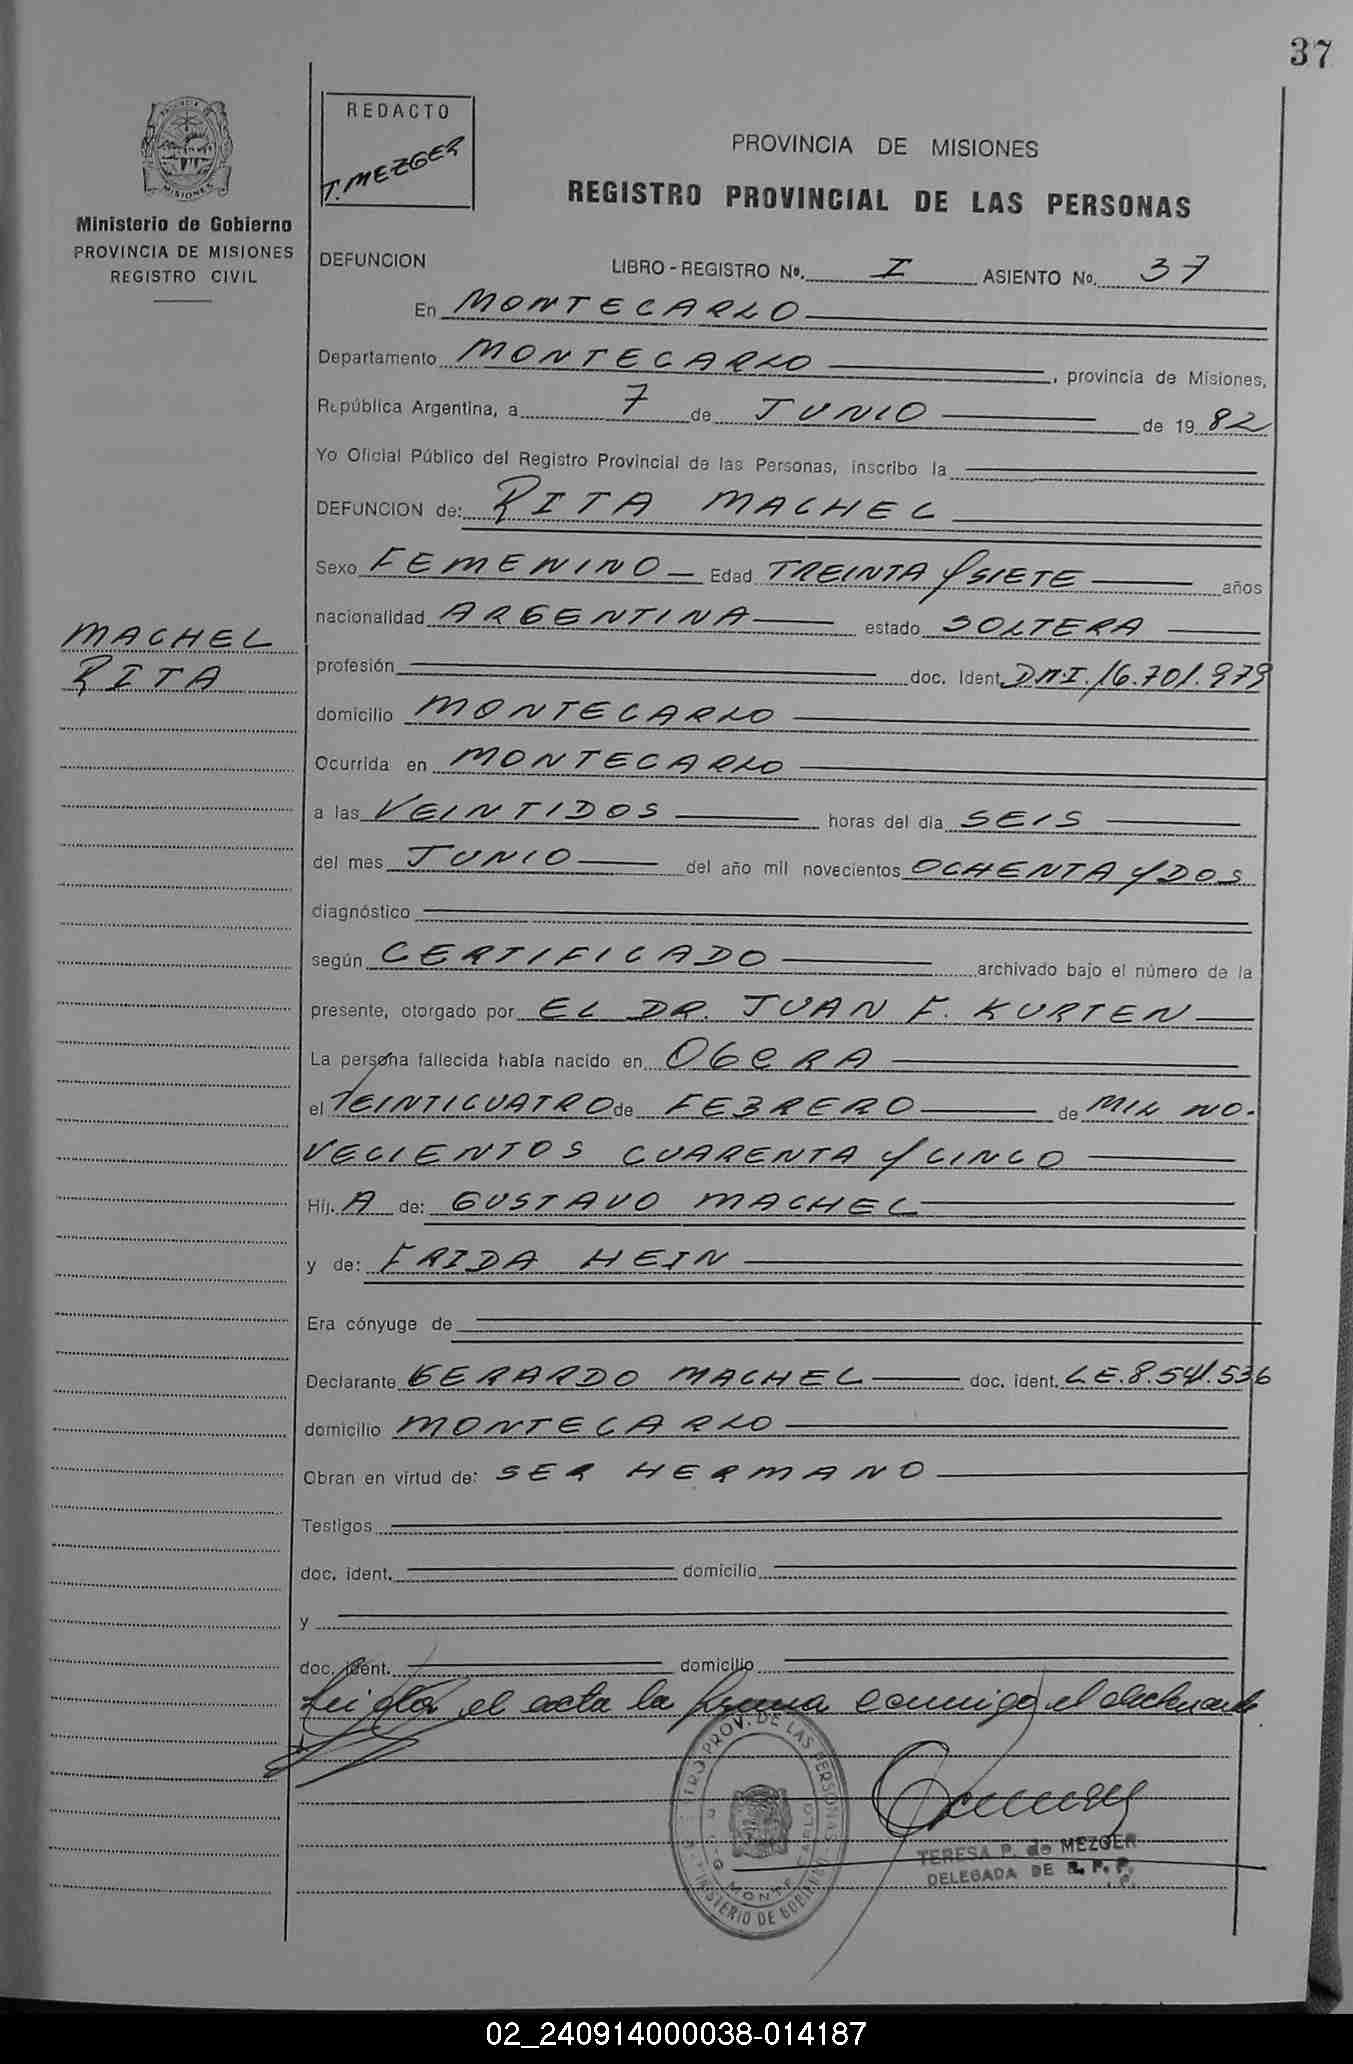 37
REDACTO
T. MEZGER
PROVINCIA DE MISIONES
REGISTRO PROVINCIAL DE LAS PERSONAS
MISIONES
Ministerio de Gobierno
PROVINCIA DE MISIONES
REGISTRO CIVIL
DEFUNCION LIBRO - REGISTRO Nº. I ASIENTO No. 37
En MONTECARLO
Departamento MONTECARLO, provincia de Misiones,
República Argentina, a 7 de JUNIO de 19 82
Yo Oficial Público del Registro Provincial de las Personas, inscribo la
DEFUNCION de: RITA MACHEL
Sexo FEMENINO Edad TREINTA Y SIETE años
nacionalidad ARGENTINA estado SOLTERA
MACHEL
RITA
profesión doc. Ident. D.N.I. 16.701.979
domicilio MONTECARLO
Ocurrida en MONTECARLO
a las VEINTIDOS horas del día SEIS
del mes JUNIO del año mil novecientos OCHENTA Y DOS
diagnóstico
según CERTIFICADO archivado bajo el número de la
presente, otorgado por EL DR. JUAN F. KURTEN
La persona fallecida había nacido en OBERA
el VEINTICUATRO de FEBRERO de MIL NO-
VECIENTOS CUARENTA Y CINCO
Hij. A de: GUSTAVO MACHEL
y de: FRIDA HEIN
Era cónyuge de
Declarante GERARDO MACHEL doc. ident. L.E. 8.541.536
domicilio MONTECARLO
Obran en virtud de: SER HERMANO
Testigos
doc. ident. domicilio
y
doc. ident. domicilio
Leida el acta la firma conmigo el declarante.
PROV. DE LAS PERSONAS
MINISTERIO DE GOBIERNO
TERESA P. de MEZGER
DELEGADA DE R. P. P.
02_240914000038-014187